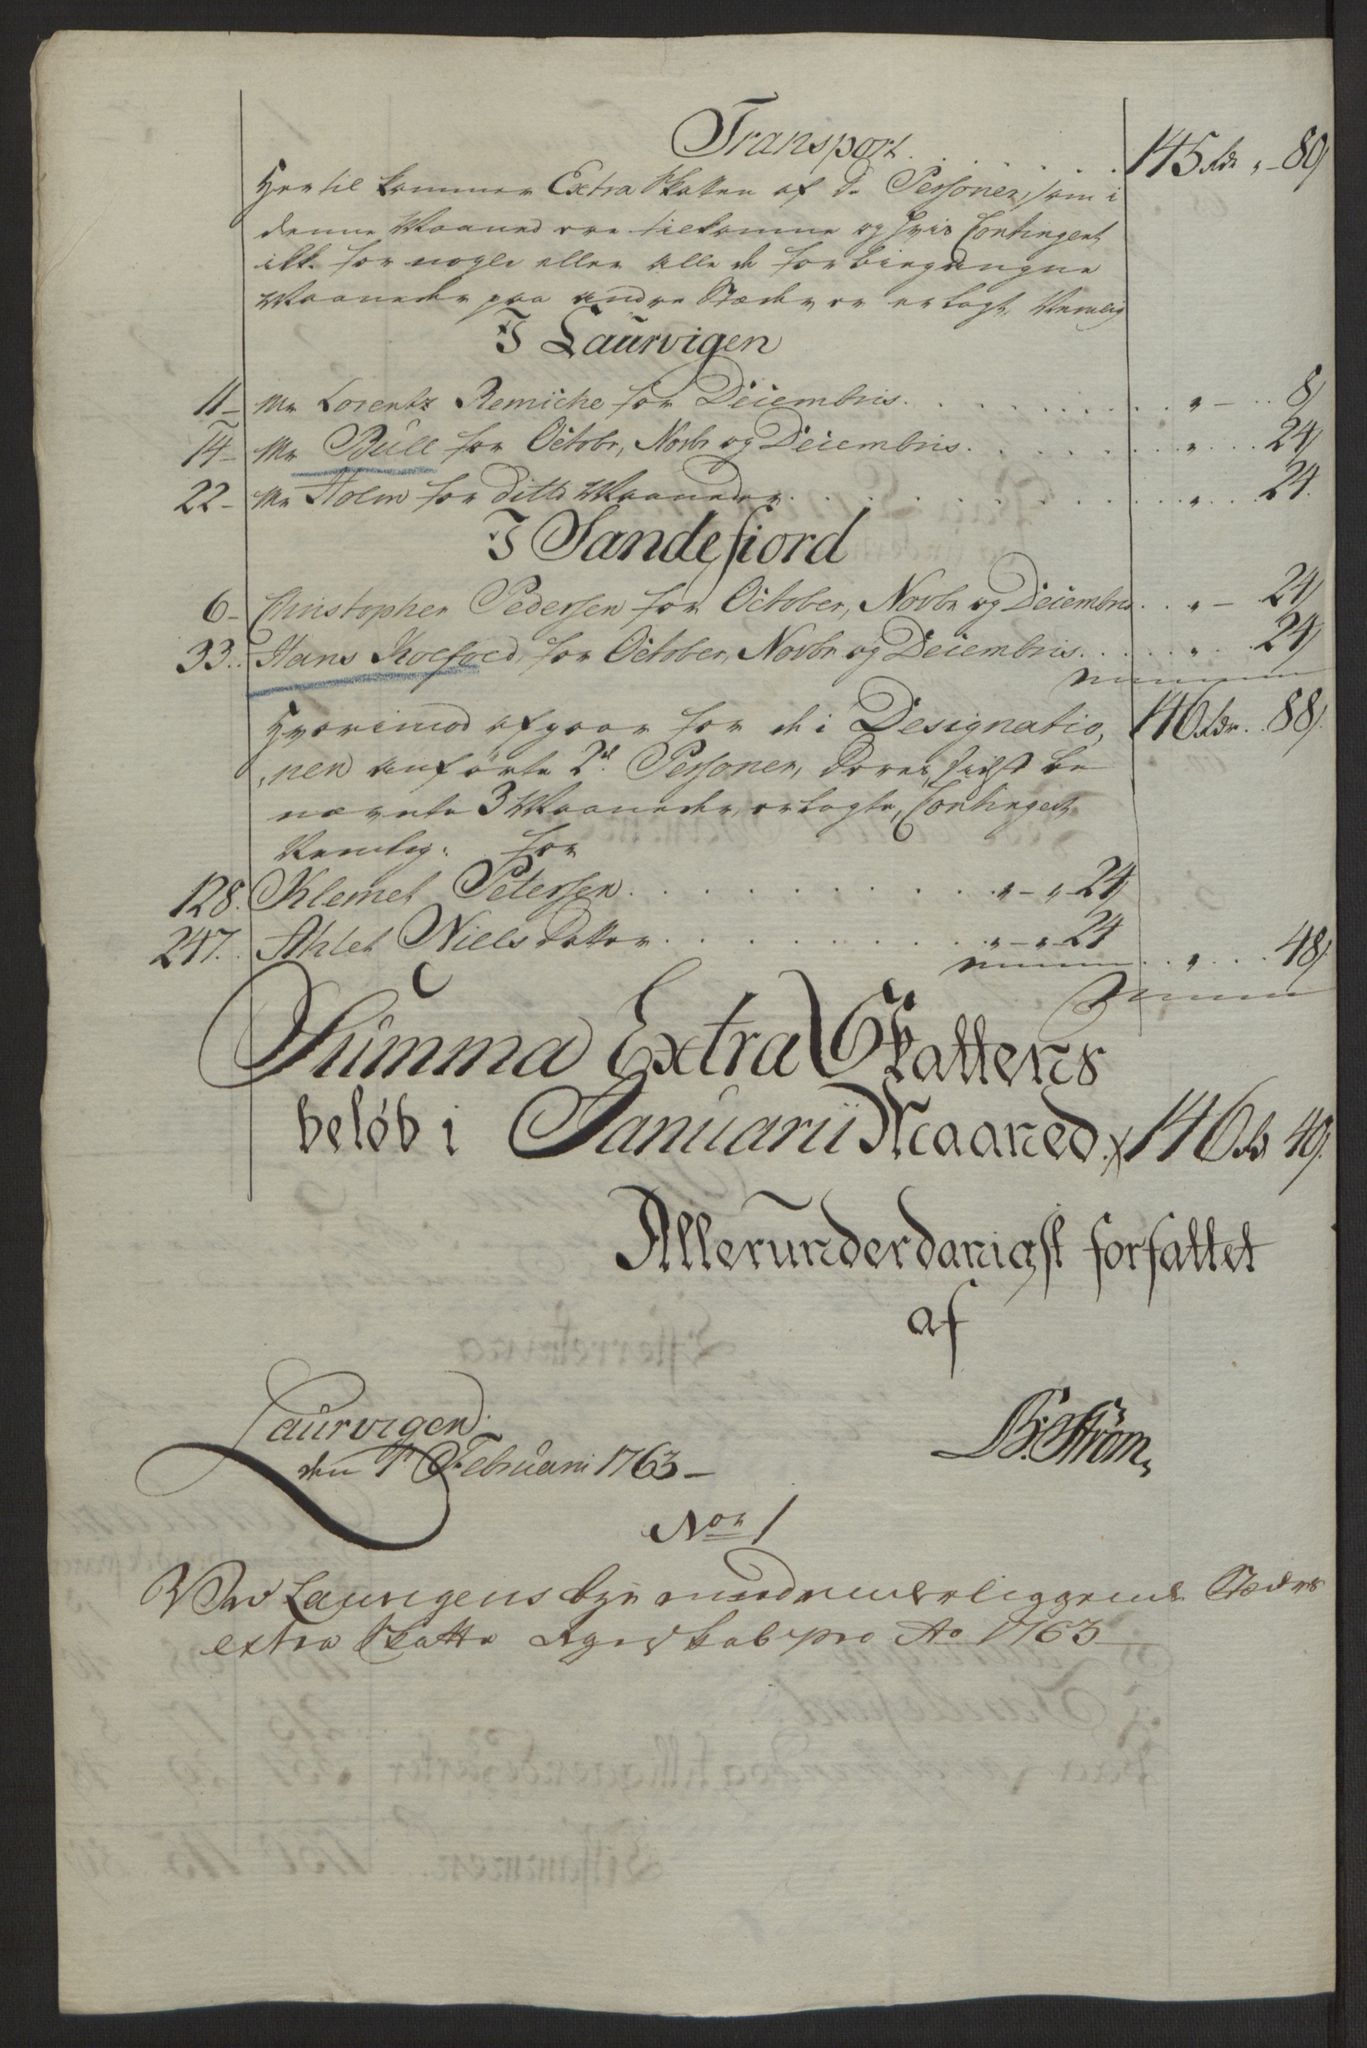 Transport . . . . . 145 Rdr „ – 80/
Hertil kommer Extra Skatten af de Personer, som i
denne Maaned ere tilkomne og hvis Contingent
ikke for nogle eller alle de forbiegangne
Maaneder paa andre Stæder er erlagt, Nemlig
I Laurvigen
11 – Mr Lorentz Remiche for Decembris . . . . „ – . . 8/
14 – Mr Büll for Octobr, Novbr og Decembris . . . . „ . . . 24/
22 – Mr Holm for ditto Maaneder . . . . „ . . . 24.
I Sandefiord
6 – Christopher Pedersen for October, Novbr og Decembris . . „ – 24/
33 . . Hans Koefoed, for October, Novbr og Decembris . . . . „ . . 24/
146 Rdr . . 88/
Hvorimod afgaar for de i Designatio,
„nen anførte 2de Personer, deres sidst be
nævnte 3 Maaneder erlagte, Contingent
Nemlig: for
128 . Klemet Petersen . . . . „ – „ 24/
247 . . Ahlet Niels Datter . . . . „ – „ 24 . . „ . . . 48/
Summa Extra Skattens
beløb i Januarii Maaned . 146 Rd 40/.
Allerunderdanigst forfattet
af
Laurvigen
den 1 Februari 1763 –
B: Strøm
Nor 1
Ved Laurvigens bye med underliggende Stæders
extra Skatte Regnskab pro Ao 1763